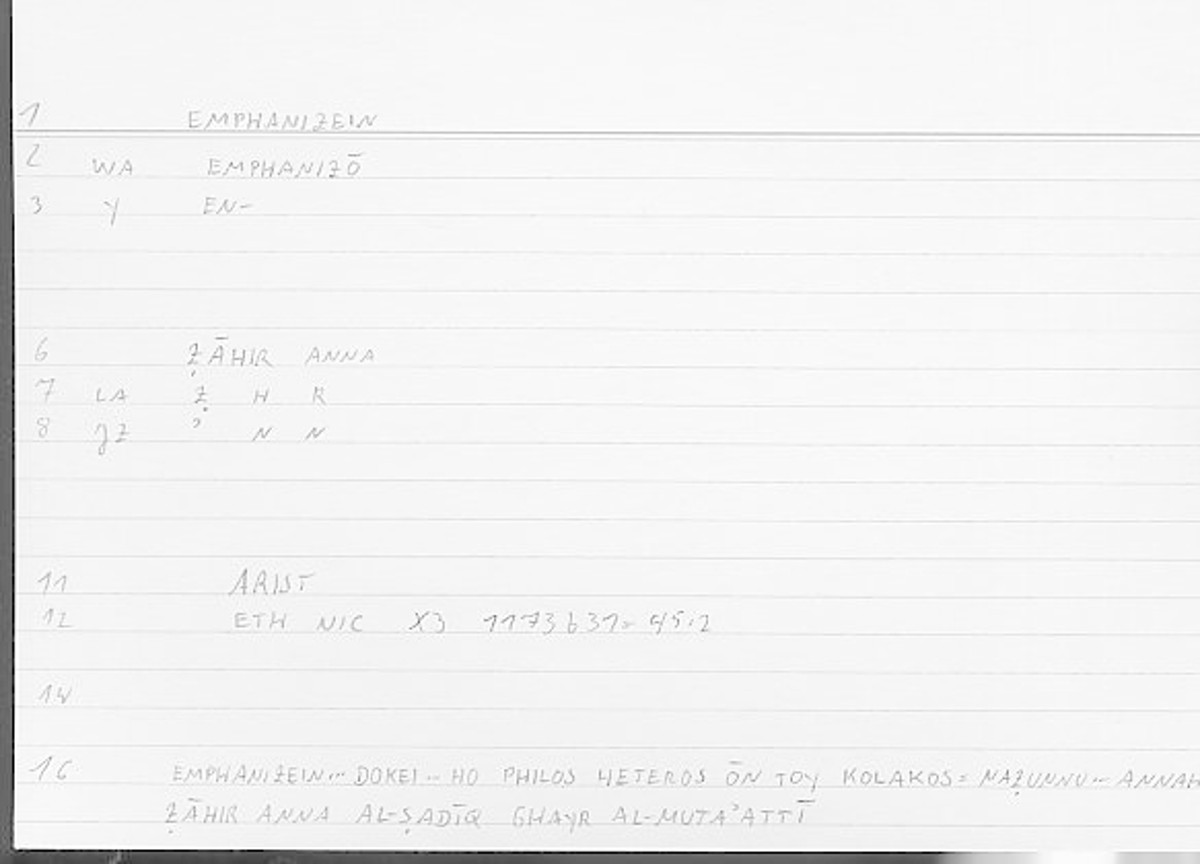 1 EMPHANIZEIN
2 WA EMPHANIZŌ
3 Y EN-
6 ẒĀHIR ANNA
7 LA Ẓ H R
8 JZ ʾ N N
11 ARIST
12 ETH NIC X3 1173b31= 45.2
14
16 EMPHANIZEIN... DOKEI... HO PHILOS HETEROS ŌN TOY KOLAKOS = NAẒUNNU... ANNAH
ẒĀHIR ANNA AL-ṢADĪQ GHAYR AL-MUTAʾATTĪ